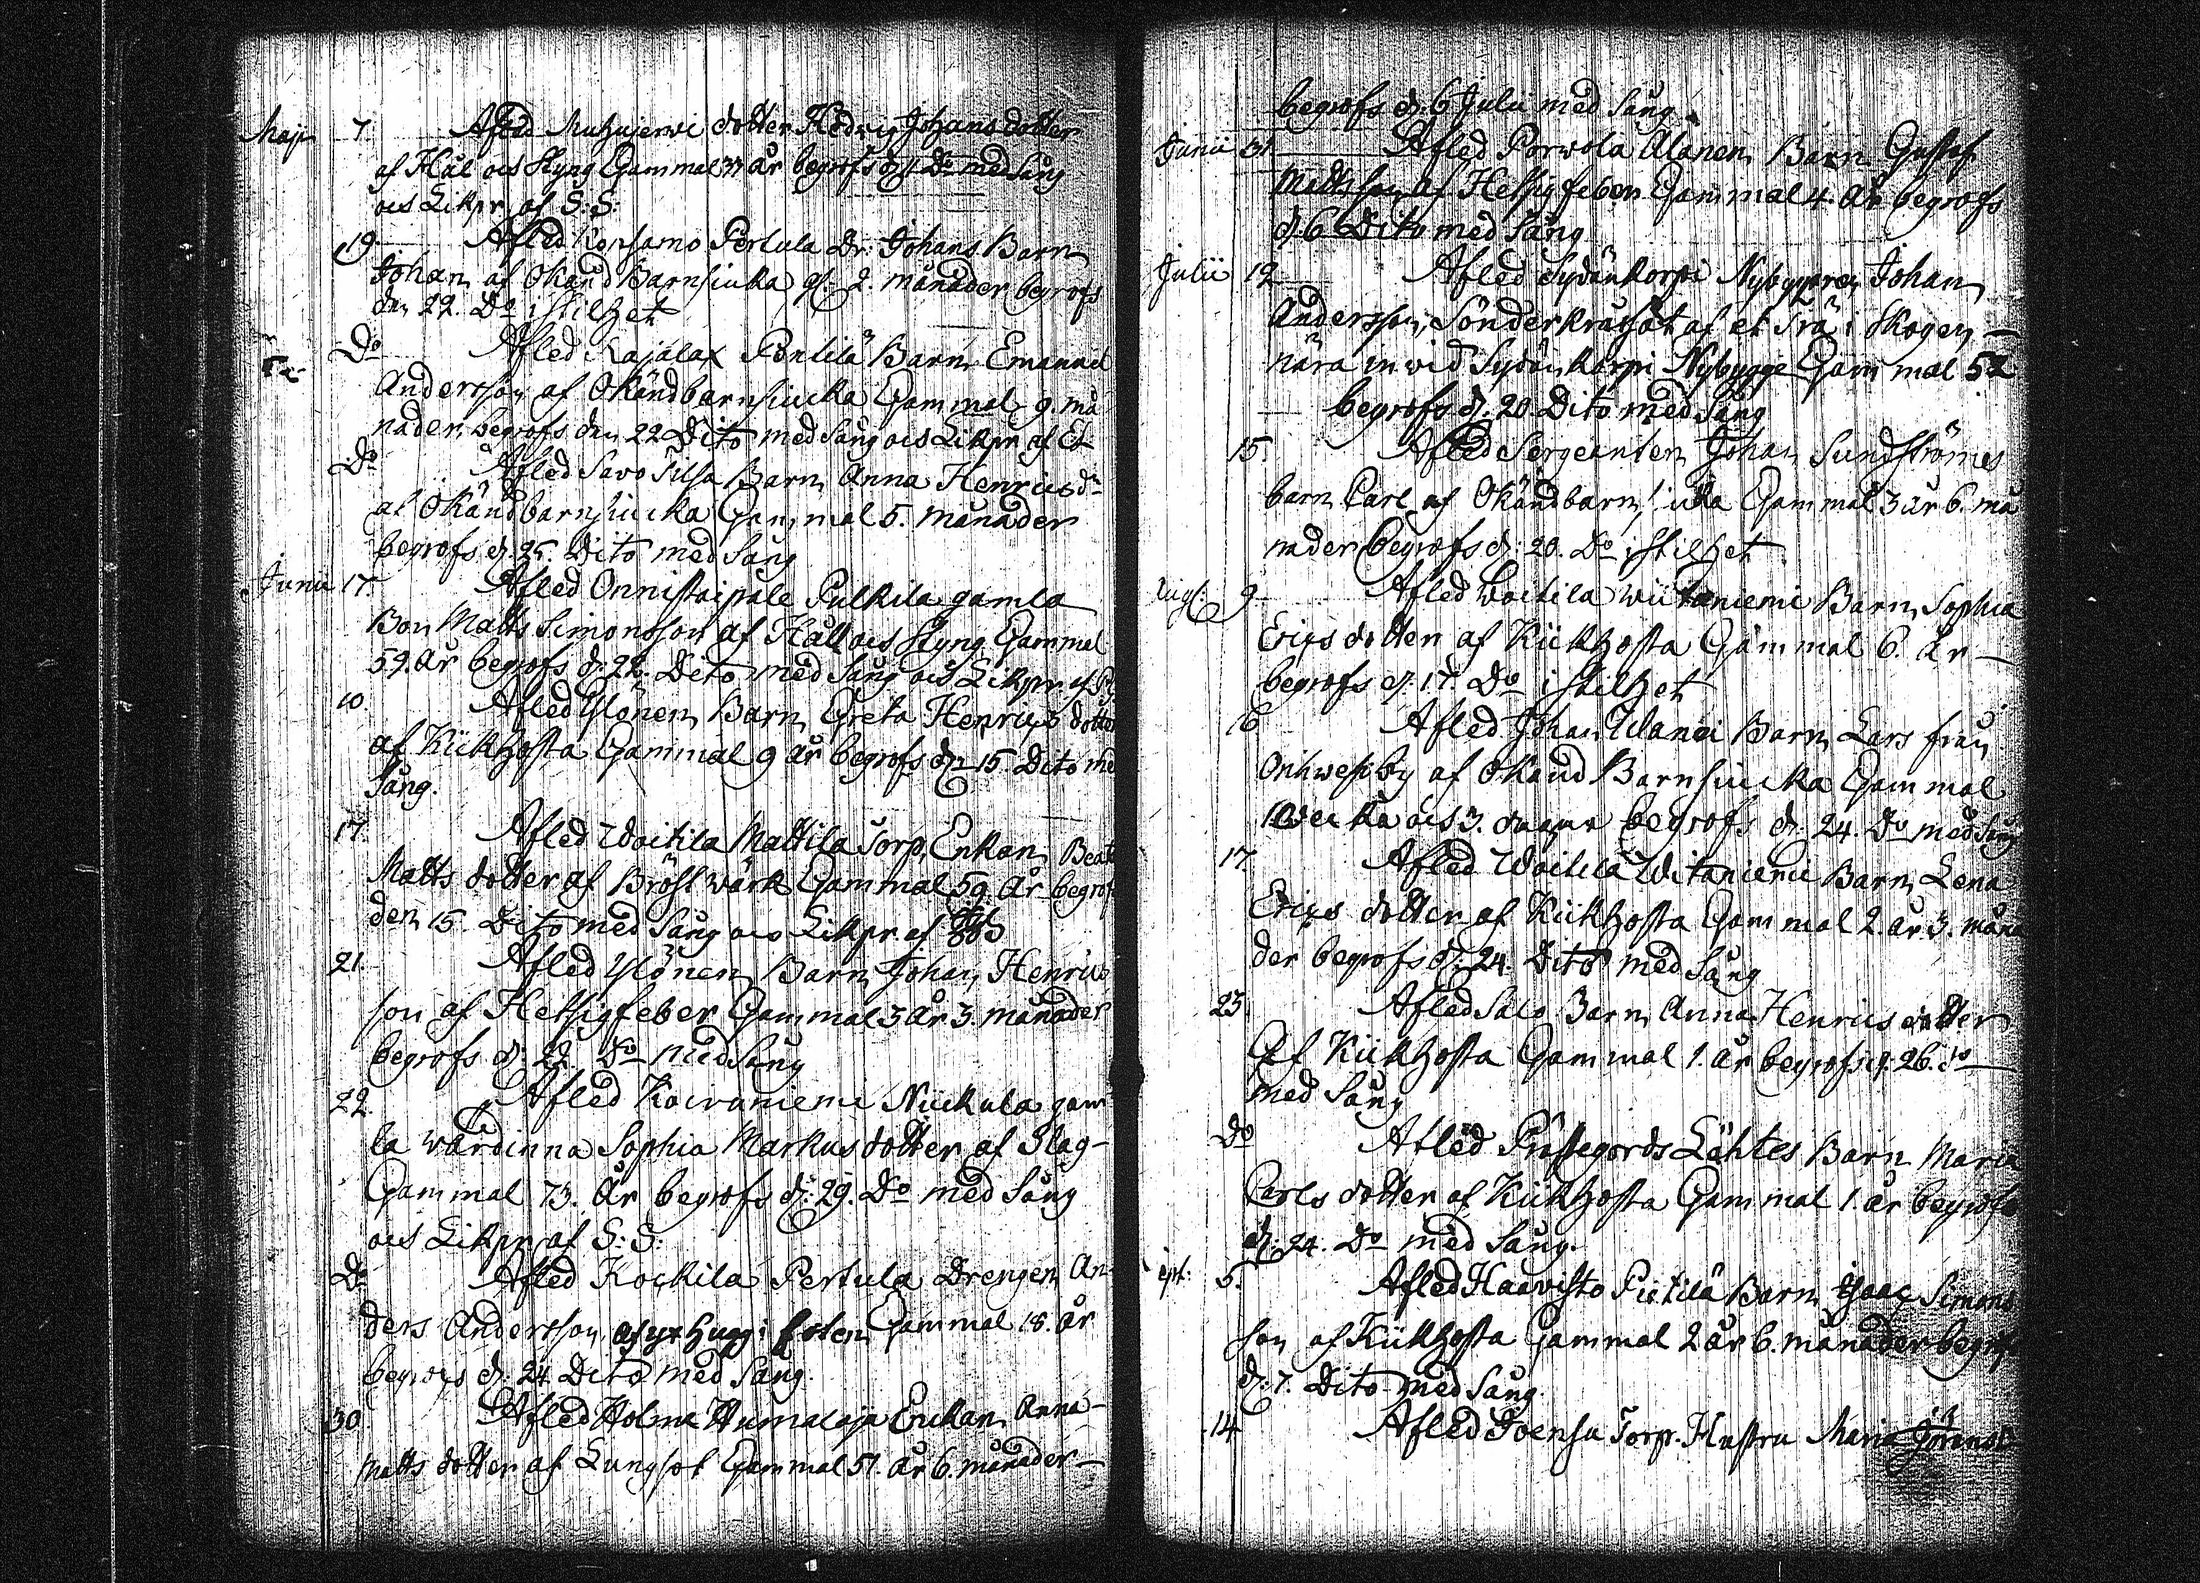 Maji 7. Afled Muhujerwi dotter Hedvig Johans dotter
af Hål ocs Styng Gammal 37 år begrofs d: 11 Do med Sång
ocs Likpr. af S: S:
19. Afled Konsamo Pertula Dr: Johans Barn
Johan af Okänd Barnsiuka gl. 2. månader begrofs
den 22. Do i stilhet
Do Afled Kajalax Pentilä Barn Emanuel
Andersson af Okändbarnsiucka Gammal 9. må
nader, begrofs den 22 Dito med Sång ocs Likpr. af
Do Afled Savo Tilsa Barn Anna Henricsdr
af Okändbarnsiucka Gammal 5. månader
begrofs d. 25. Dito med Sång
Junii 17. Afled Onnistaipale Pulkila gamla
Bon Matts Simonsson af Håll ocs Styng Gammal
59. år begrofs d: 22. Dito med Sång ocs Likpr. af
10. Afled Ylönen Barn Greta Henrics dotter
af Kiikhosta Gammal 9 år begrofs d: 15. Dito med
Sång.
17. Afled Woitila Mattila Torp. Enkan Beata
Matts dotter af Bröstwärk Gammal 59. år begrofs
den 15. Dito med Sång ocs Likpr. af
21. Afled Ylönen Barn Johan Henrics
son af Hetsigfeber Gammal 3 år 3. månader
begrofs d: 22 Do med Sång
22. Afled Koivuniemi Niickula gam
la wärdinna Sophia Markus dotter af Slag-
Gammal 73. år begrofs d: 29. Do med Sång
ocs Likpr. af S: S:
Do Afled Kockila Pertula Drengen An-
ders Andersson af yxhugg i foten Gammal 18. år
begrofs d: 24 Dito med Sång.
30. Afled Holma Humaloja Enckan Anna-
Matts dotter af Lungsot Gammal 51. år 6. månader-
begrofs d: 6 Julii med Sång.
Junii 31 Afled Porwola Alanen Barn Gustaf
Mattsson af Hetsigfeber Gammal 4. år begrofs
d. 6 Dito med Sång
Julii 12 Afled Sydänkorpi Nybyggaren Johan
Andersson, Sönderkråssat af et trä i skogen -
nära inwid Sydänkorpi Nybygge Gammal 52
begrofs d: 20 Dito med Sång
15. Afled Sergeanten Johan Sundströmes
barn Carl af Okändbarnsiuka Gammal 3 år 6. må
nader begrofs d: 20. Do i stilhet
Augt: 9 Afled Woitila wiitaniemi Barn Sophia
Erics dotter af Kiikhosta Gammal 6. år -
begrofs d: 17. Do i stilhet
16 Afled Johan Ulanoi Barn Lars från
Onkwesiby af Okänd Barnsiucka Gammal
1 Wecka ocs 3. dagar begrofs d: 24. Do med Sång
17. Afled Woitila Witaniemi Barn Lena
Erics dotter af Kiikhosta Gammal 2. år. 3. måna
der begrofs d: 24. Dito med Sång
23 Afled Salo Barn Anna Henrics dotter
Af Kiikhosta Gammal 1. år begrofs d: 26. do
med Sång
Do Afled Prästegårds Lähtes Barn Maria
Carls dotter af Kiikhosta Gammal 1. år begrofs
d: 24. Do med Sång.
ept: 5. Afled Haavisto Pietilä Barn Isaac Simons
son af Kiikhosta Gammal 2 år 6. månader begrofs
d: 7. Dito med Sång.
14 Afled Joensu Torp. Hustru Maria